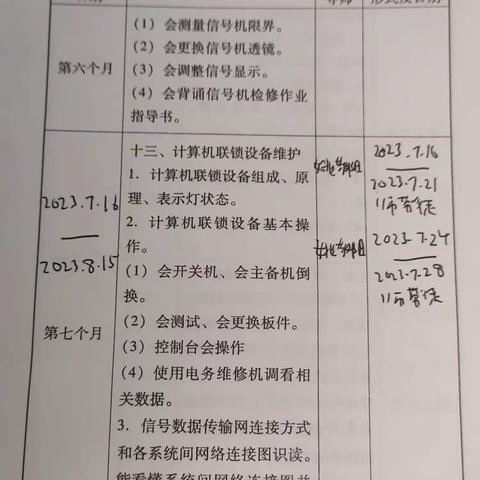 （1）会测量信号机限界。
（2）会更换信号机透镜。
第六个月
（3）会调整信号显示。
（4）会背诵信号机检修作业
指导书。
十三、计算机联锁设备维护
1. 计算机联锁设备组成、原
理、表示灯状态。
2. 计算机联锁设备基本操
作。
（1）会开关机、会主备机倒
换。
（2）会测试、会更换板件。
（3）控制台会操作
（4）使用电务维修机调看相
关数据。
3. 信号数据传输网连接方式
和各系统间网络连接图识读。
能看懂系统间网络连接图并
2023.7.16
2023.8.15
第七个月
2023.7.16
2023.7.21
2023.7.24
2023.7.28